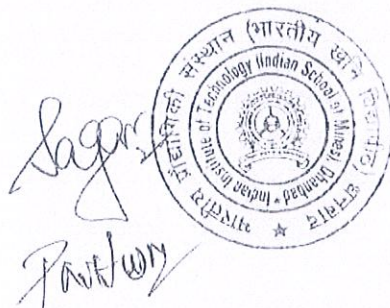 भारतीय प्रौद्योगिकी संस्थान (भारतीय खनि विद्यापीठ) धनबाद
Indian Institute of Technology (Indian School of Mines), Dhanbad
Sagar